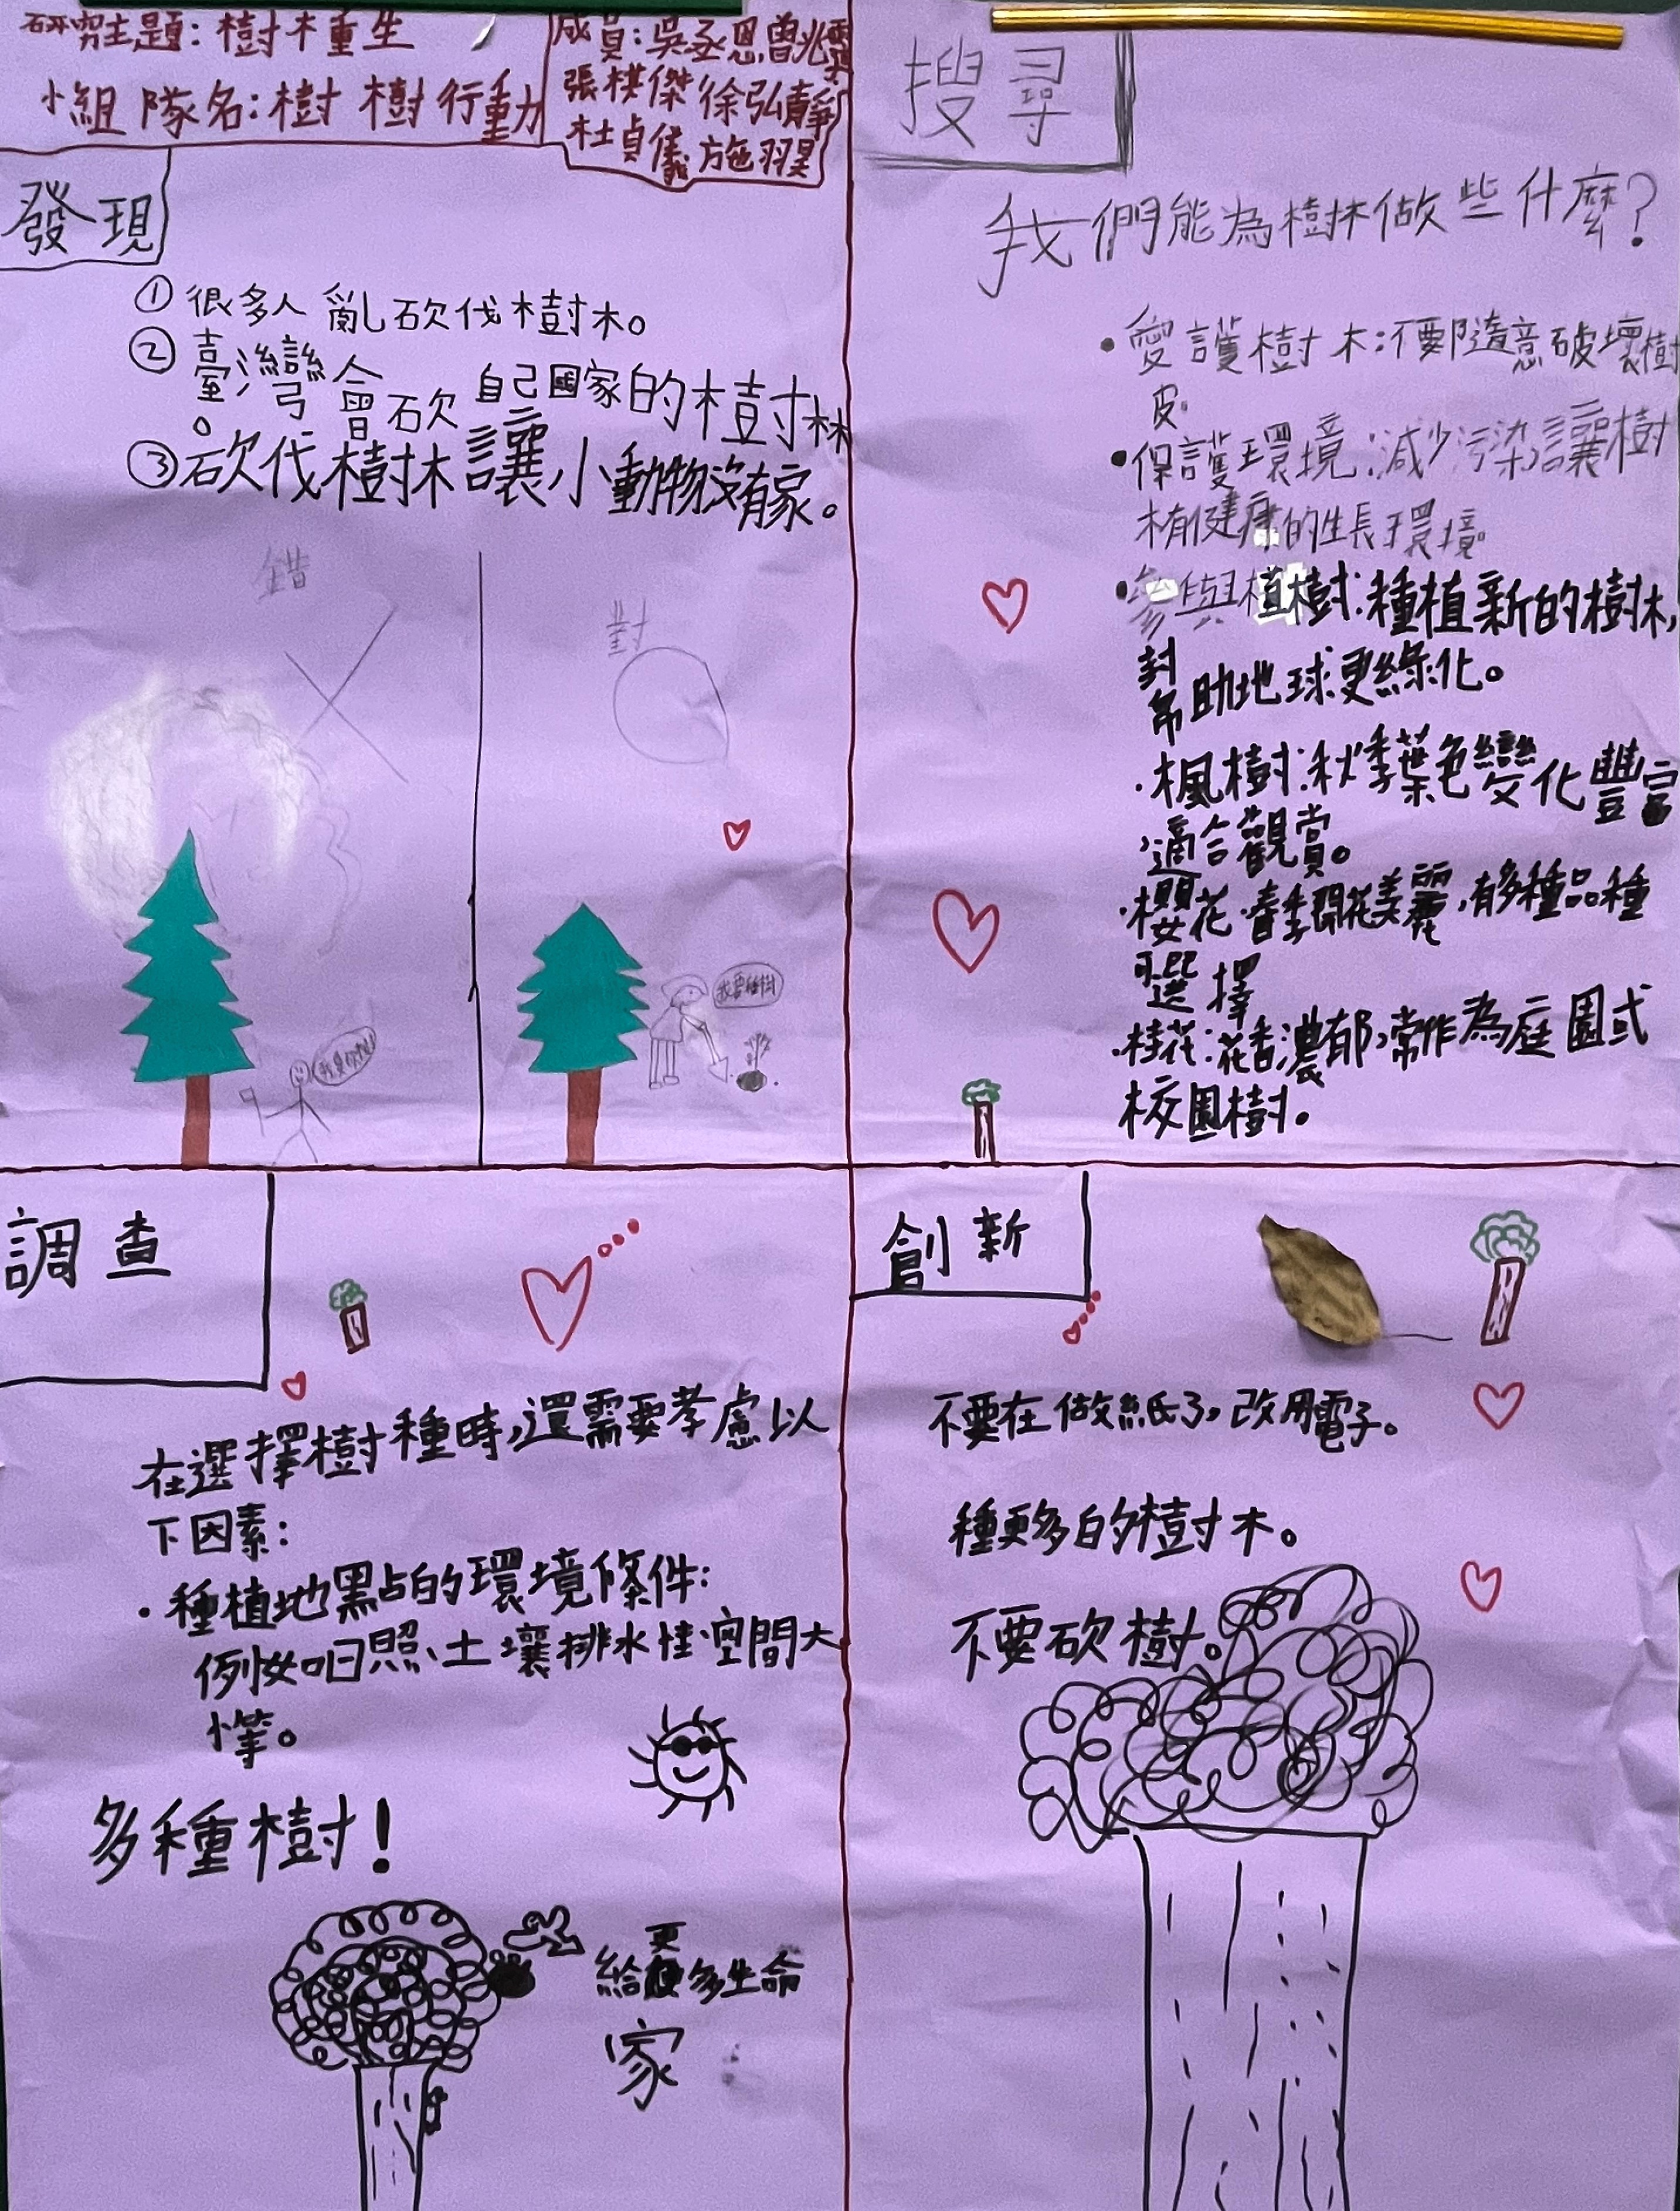 研究主題:樹木重生
小組隊名:樹樹行動
成員:吳丞恩曾兆
張棋傑徐弘靜
杜貞儀施羽
發現
①很多人亂砍伐樹木。
②臺灣會砍自己國家的樹林
。
③砍伐樹林讓小動物沒有家。
錯
對
我要種樹
搜尋
我們能為樹林做些什麼?
•愛護樹木:不要隨意破壞樹
皮。
•保護環境:減少污染,讓樹
木有健康的生長環境。
•參與植樹:種植新的樹木,
幫助地球更綠化。
·楓樹:秋季葉色變化豐富
,適合觀賞。
·櫻花·春季開花美麗,有多種品種
可選擇
·桂花:花香濃郁,常作為庭園或
校園樹。
調查
在選擇樹種時,還需要考慮以
下因素:
·種植地點的環境條件:
例如日照、土壤排水性、空間大
小等。
多種樹!
給更多生命
家
創新
不要在做紙了,改用電子。
種更多的樹木。
不要砍樹。